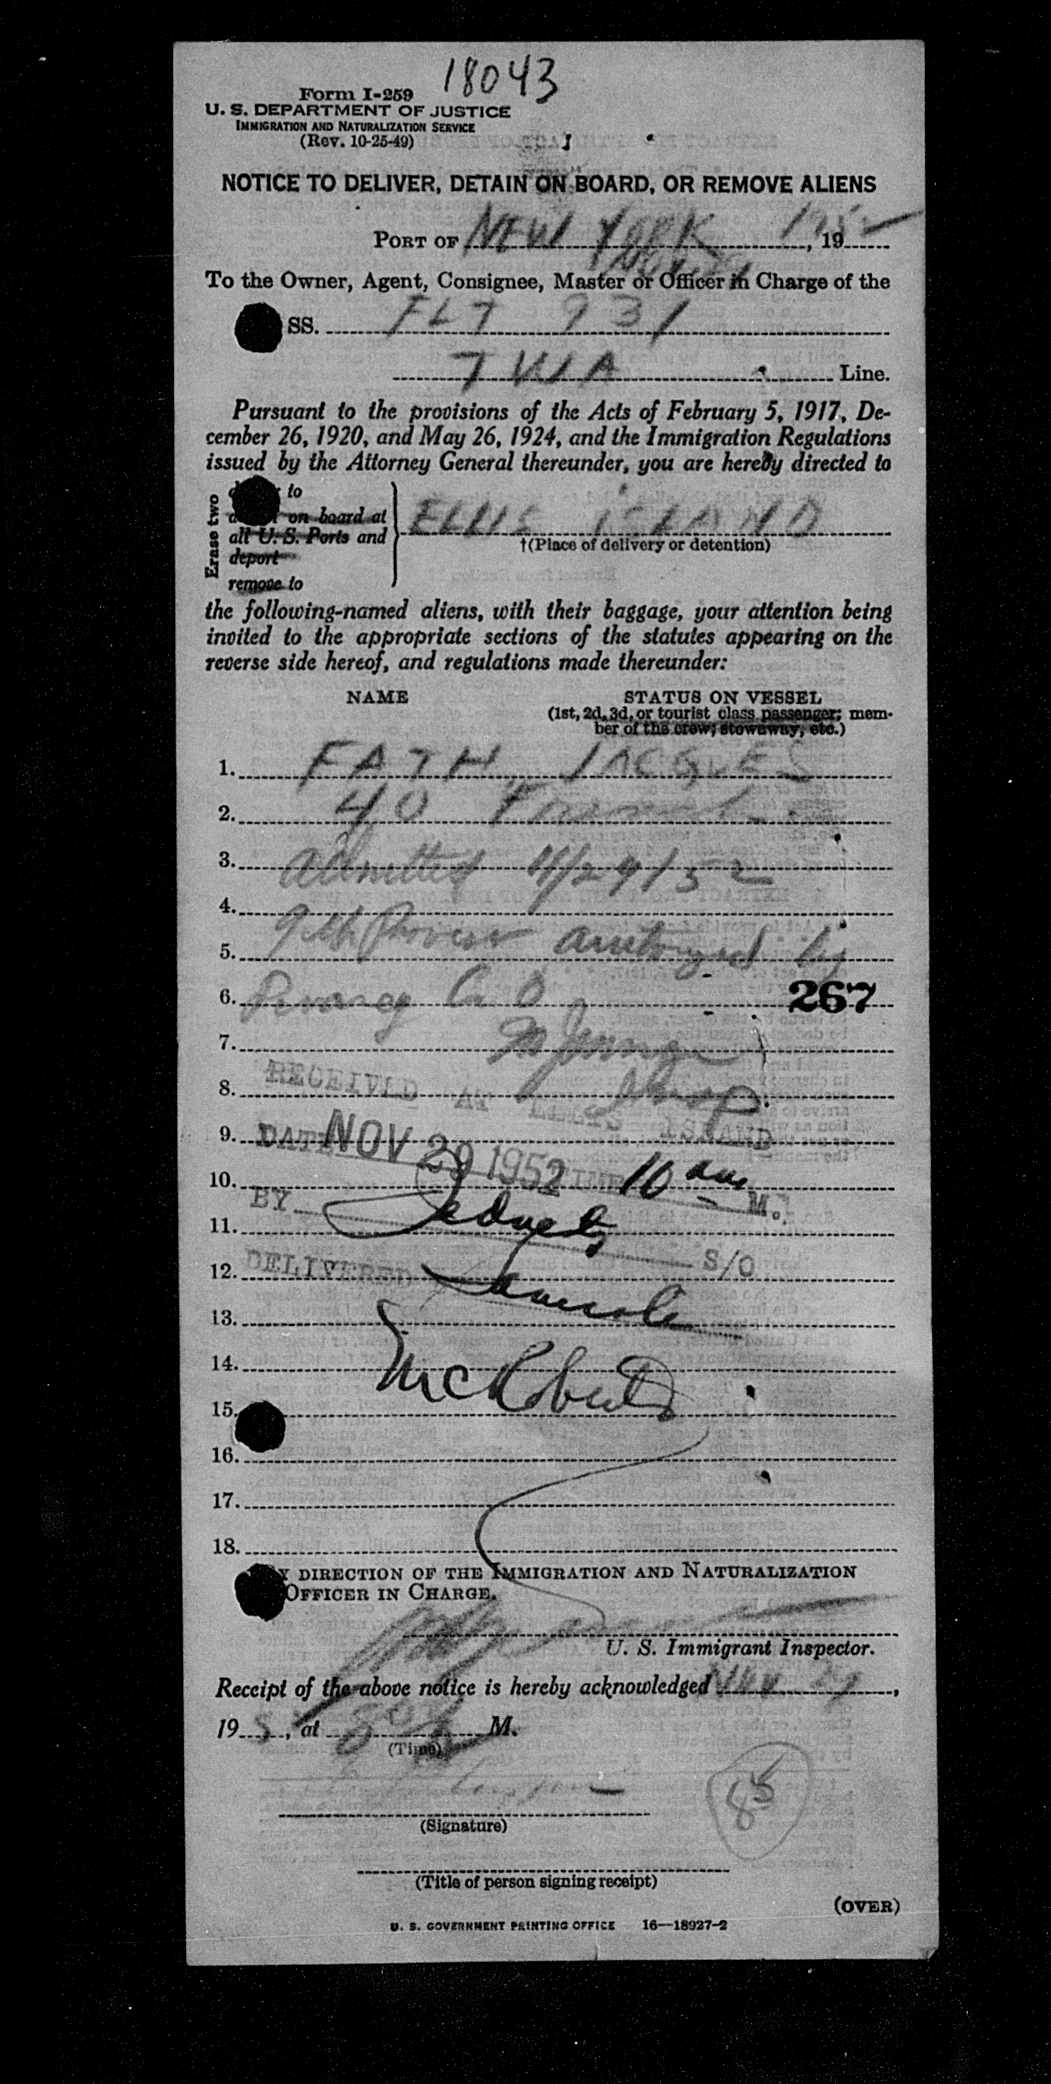 18043
Form I-259
U. S. DEPARTMENT OF JUSTICE
IMMIGRATION AND NATURALIZATION SERVICE
(Rev. 10-25-49)
NOTICE TO DELIVER, DETAIN ON BOARD, OR REMOVE ALIENS
PORT OF NEW YORK 1952, 19
To the Owner, Agent, Consignee, Master or Officer in Charge of the
SS. FLT 931
TWA Line.
Pursuant to the provisions of the Acts of February 5, 1917, De-
cember 26, 1920, and May 26, 1924, and the Immigration Regulations
issued by the Attorney General thereunder, you are hereby directed to
Erase two
to
on board at
all U. S. Ports and
deport
remove to
ELLIS ISLAND
†(Place of delivery or detention)
the following-named aliens, with their baggage, your attention being
invited to the appropriate sections of the statutes appearing on the
reverse side hereof, and regulations made thereunder:
NAME STATUS ON VESSEL
(1st, 2d, 3d, or tourist class passenger; mem-
ber of the crew; stowaway, etc.)
1. FATH, JACQUES
2. 40 French
3. Admitted 11/29/52
4.
5. 9th Proviso authorized by
6. 267
7.
8.
RECEIVED AT ELLIS ISLAND
9.
DATE NOV 29 1952 TIME 10 am M.
10.
BY
11.
S/O
12.
DELIVERED
13.
14. McRoberts
15.
16.
17.
18.
BY DIRECTION OF THE IMMIGRATION AND NATURALIZATION
OFFICER IN CHARGE.
U. S. Immigrant Inspector.
Receipt of the above notice is hereby acknowledged Nov. 29,
19 5, at M.
(Time)
85
(Signature)
(Title of person signing receipt)
(OVER)
U. S. GOVERNMENT PRINTING OFFICE 16—18927-2